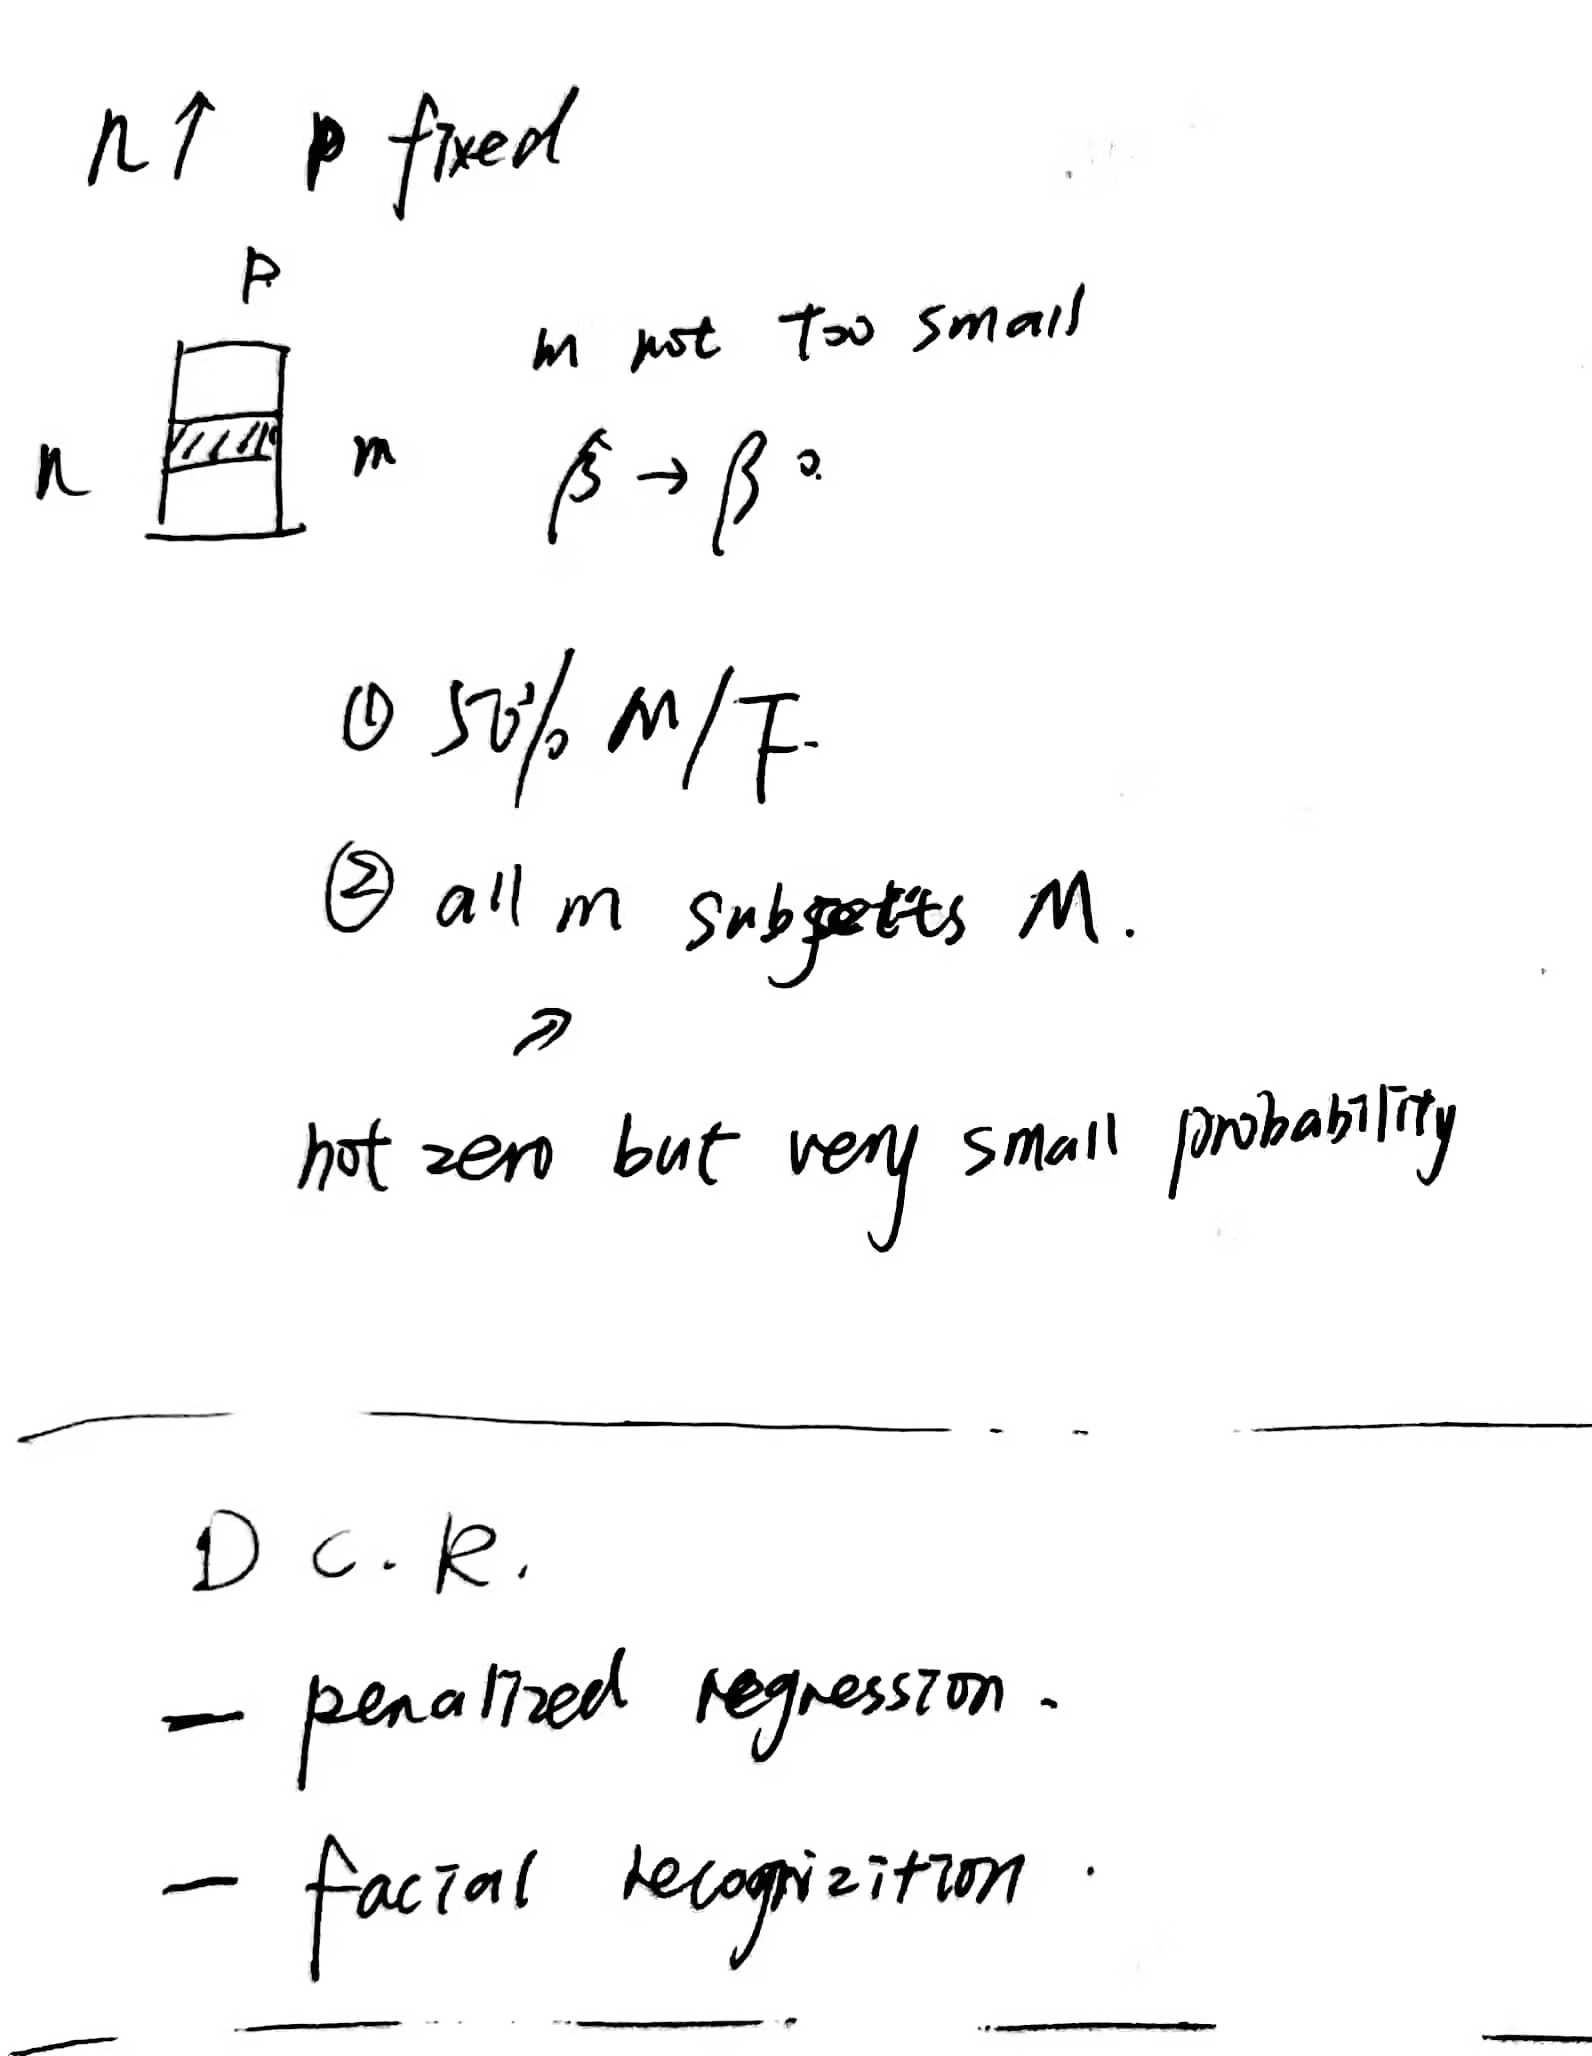 n↑ p fixed
p.
m not too small
n m β̂ → β⁰.
① 50% M/F.
② all m subjetts M.
⇗
not zero but very small probability
D C. R.
– penalized regression.
– facial recognizition.